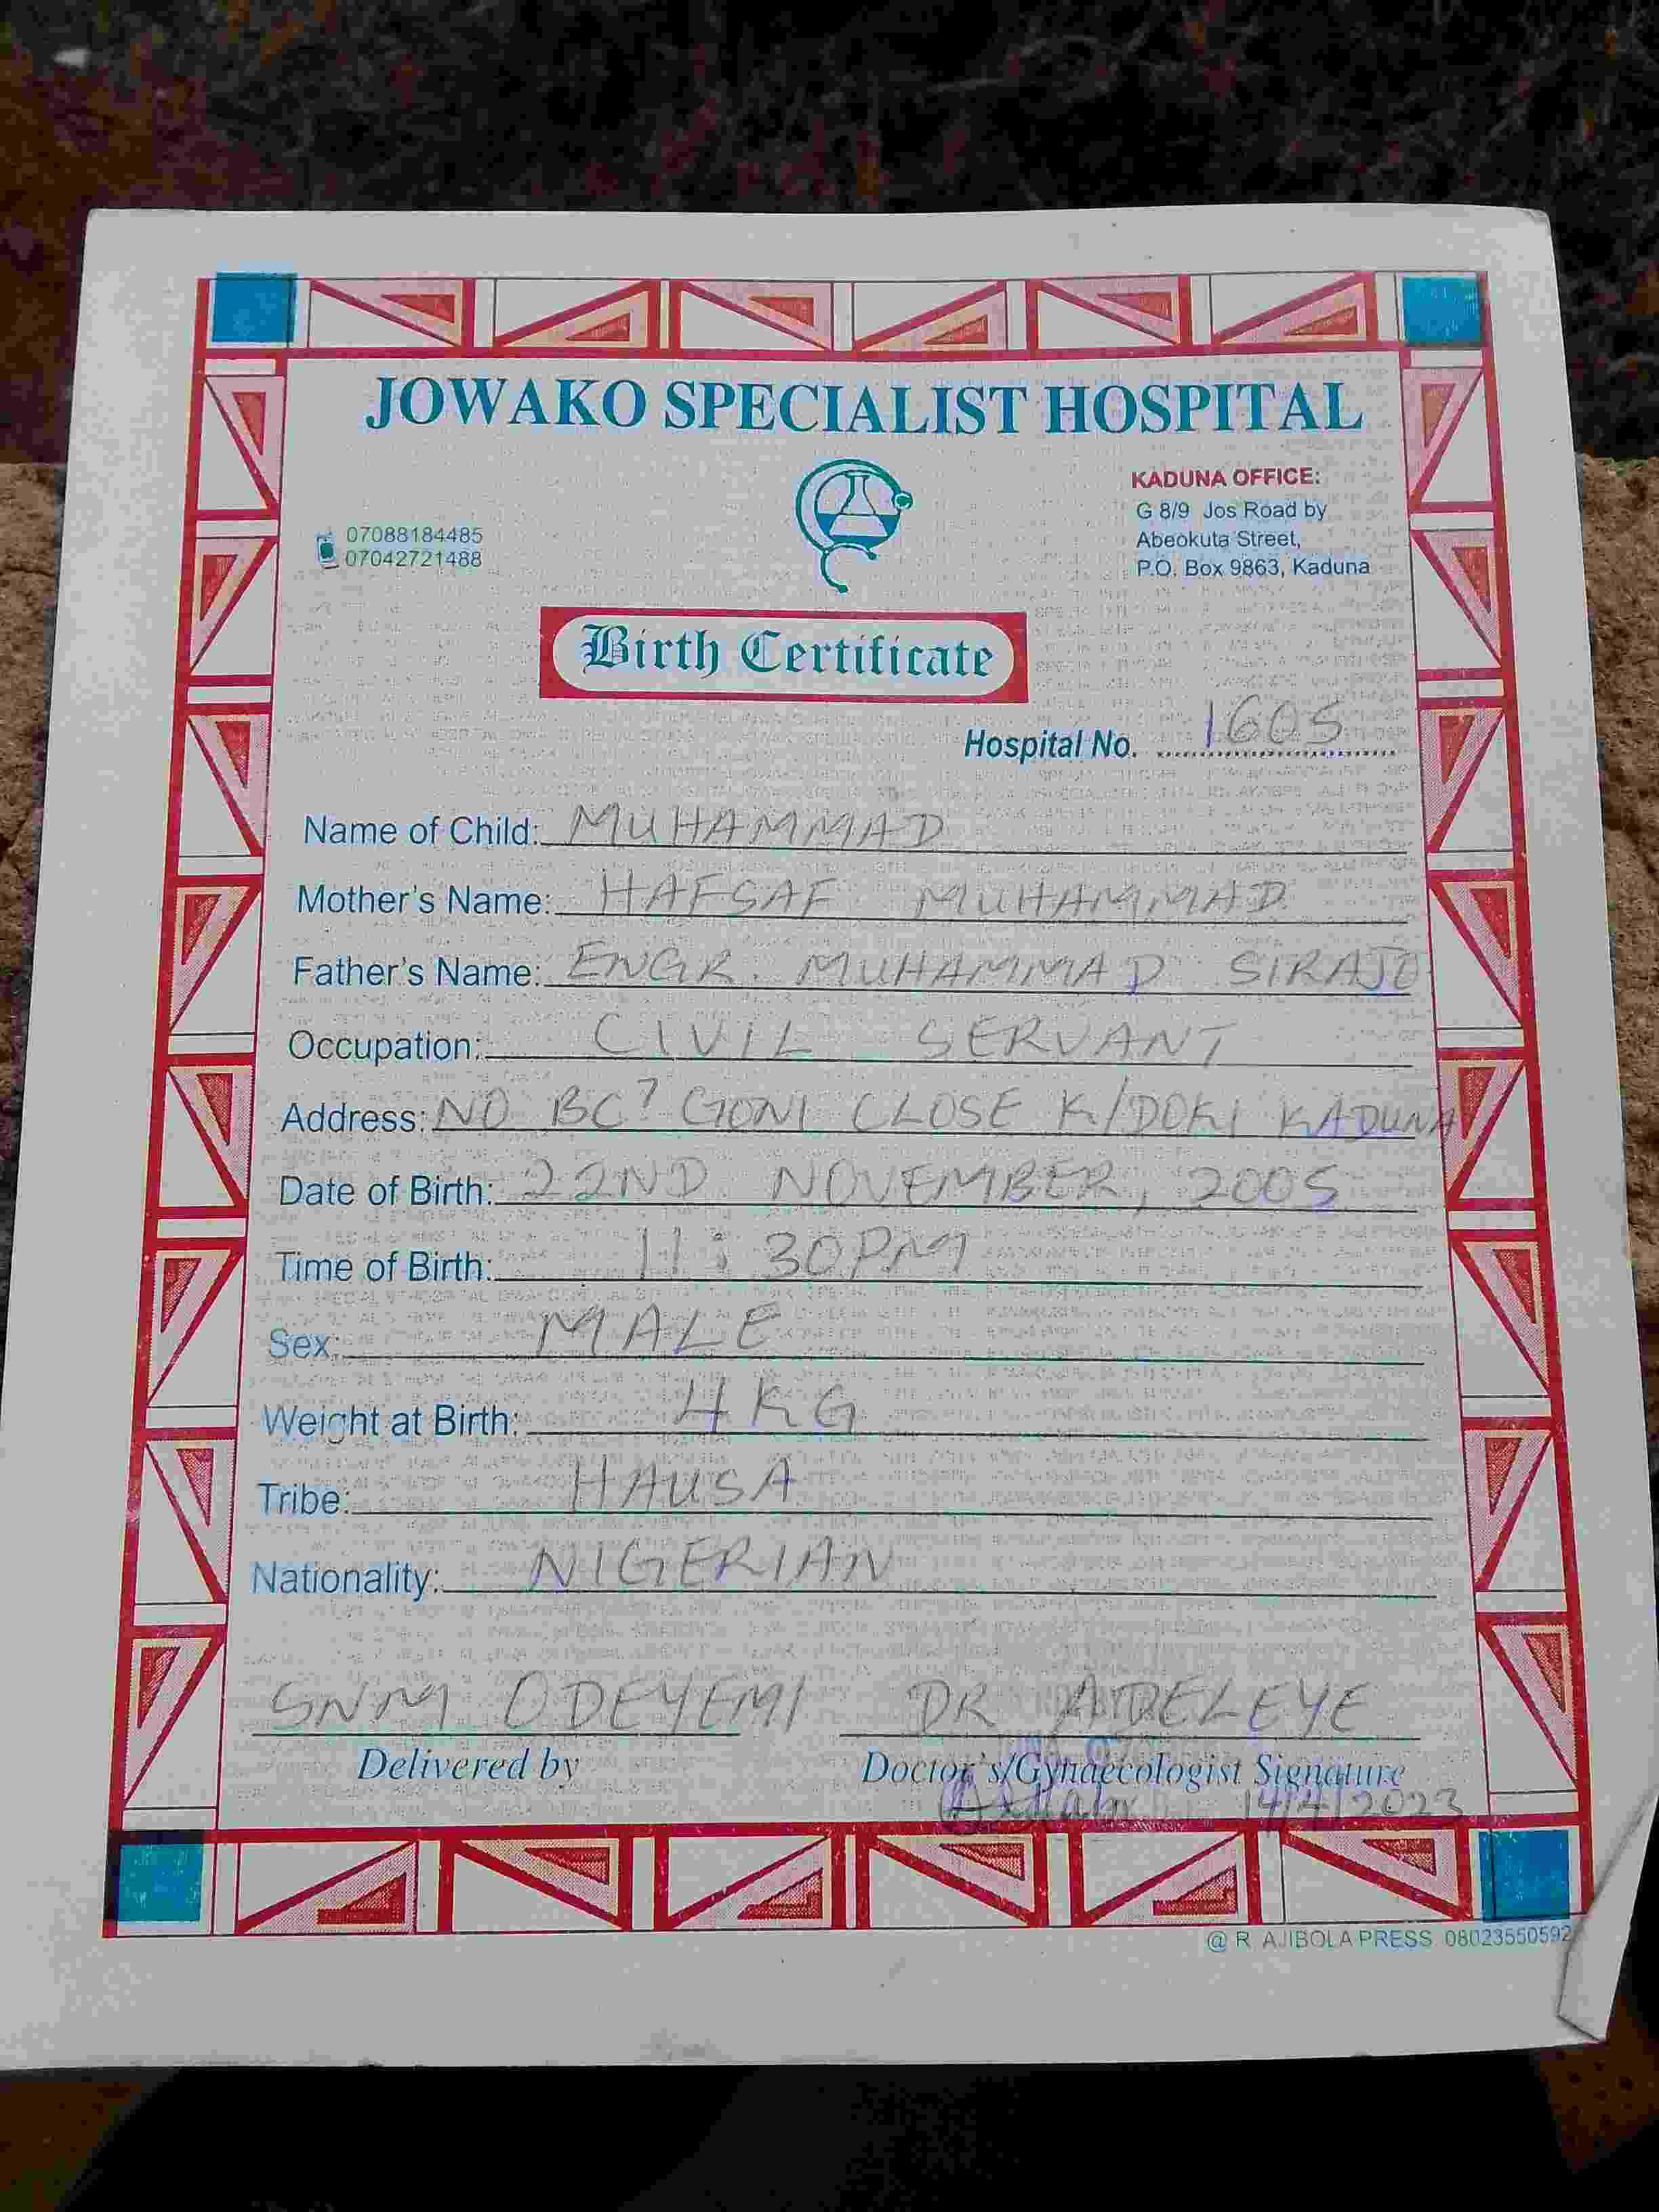 JOWAKO SPECIALIST HOSPITAL
KADUNA OFFICE:
G 8/9 Jos Road by
Abeokuta Street,
P.O. Box 9863, Kaduna
07088184485
07042721488
Birth Certificate
Hospital No. 1605
Name of Child: MUHAMMAD
Mother's Name: HAFSAF MUHAMMAD
Father's Name: ENGR. MUHAMMAD SIRAJO
Occupation: CIVIL SERVANT
Address: NO BC7 GONI CLOSE K/DOKI KADUNA
Date of Birth: 22ND NOVEMBER, 2005
Time of Birth: 11:30PM
Sex: MALE
Weight at Birth: 4KG
Tribe: HAUSA
Nationality: NIGERIAN
SNM ODEYEMI DR ADELEYE
Delivered by Doctor's/Gynaecologist Signature
14/4/2023
@ R AJIBOLA PRESS 08023550592